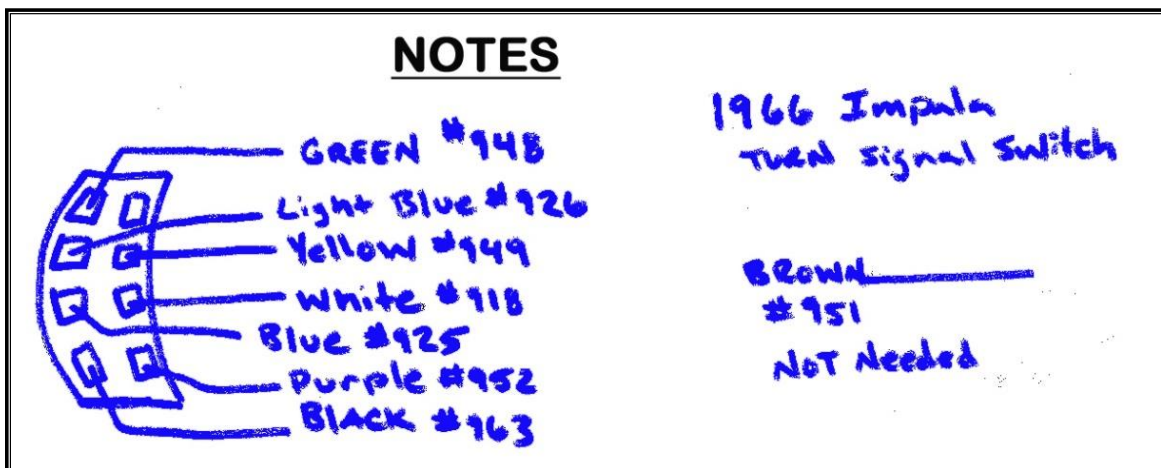 NOTES
GREEN #948
Light Blue #926
Yellow #949
White #918
Blue #925
Purple #952
BLACK #963
1966 Impala
Turn Signal Switch
BROWN
#951
NOT Needed